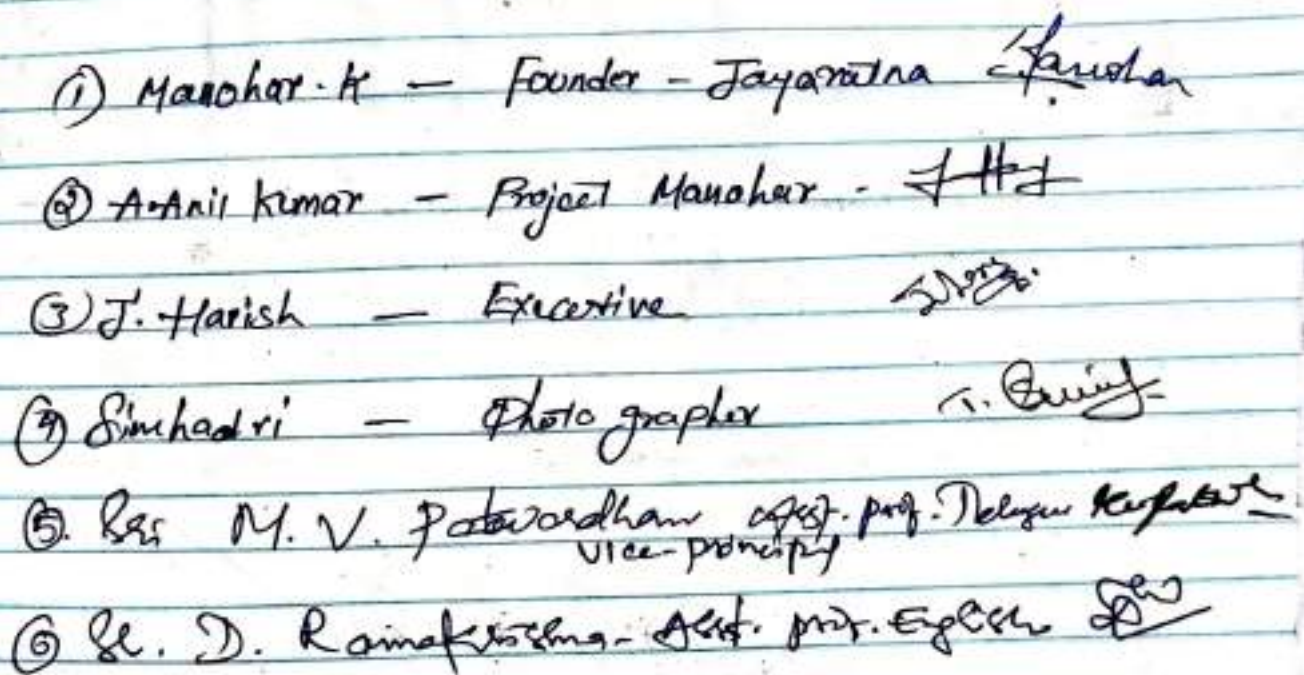 ① Manohar. K — Founder - Jayaratna Manohar
② A. Anil kumar — Project Manohar -
③ J. Harish — Executive
④ Simhadri — Photo grapher
⑤. Sri M. V. Patwardhan Asst. prof. Telugu
vice-principal
⑥ Sri. D. Ramakrishna - Asst. prof. English